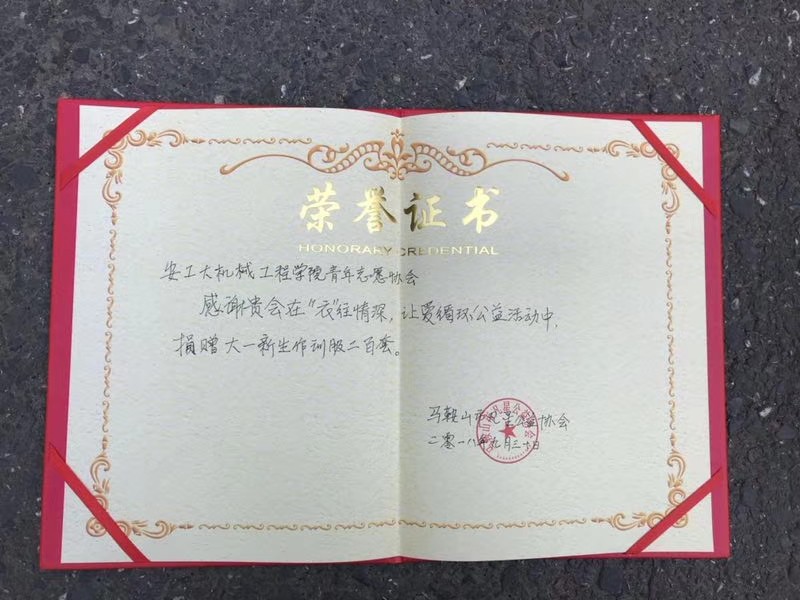 荣誉证书
HONORARY CREDENTIAL
安工大机械工程学院青年志愿协会
感谢贵会在"衣"往情深,让爱循环公益活动中,
捐赠大一新生作训服二百套。
马鞍山市凡星公益协会
二零一八年九月三十日